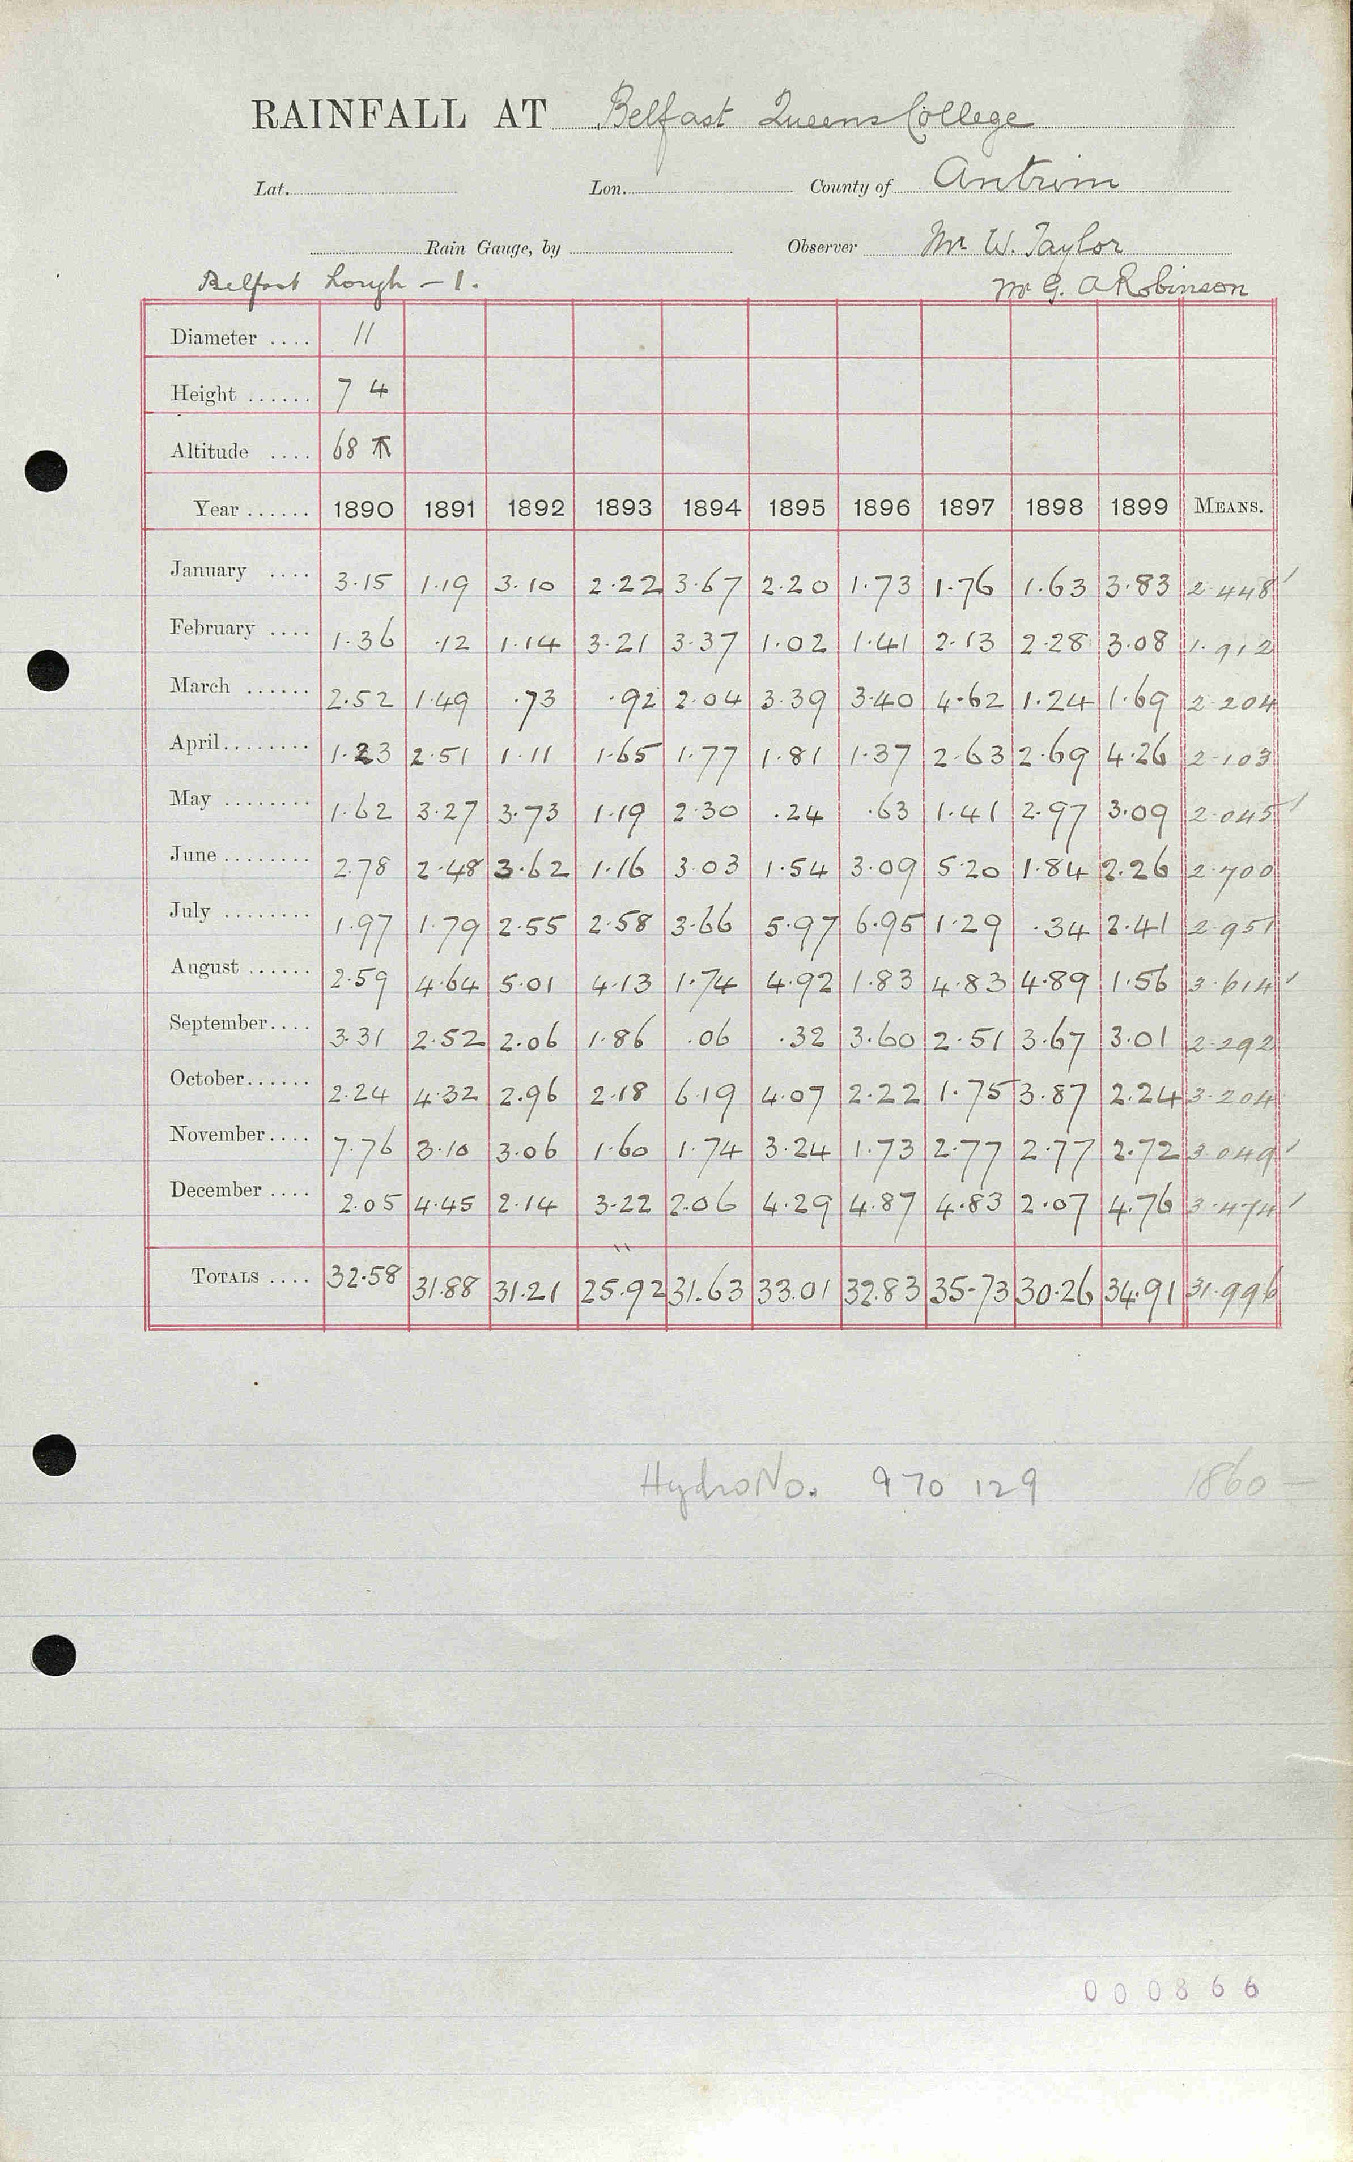 RAINFALL AT Belfast Queens College
Lat. Lon. County of Antrim
Rain Gauge, by Observer Mr W. Taylor
Belfast Lough - 1. Mr G. A Robinson
Diameter .... 11
Height ...... 7 4
Altitude .... 68
Year ...... 1890 1891 1892 1893 1894 1895 1896 1897 1898 1899 MEANS.
January .... 3.15 1.19 3.10 2.22 3.67 2.20 1.73 1.76 1.63 3.83 2.448
February .... 1.36 .12 1.14 3.21 3.37 1.02 1.41 2.13 2.28 3.08 1.912
March ...... 2.52 1.49 .73 .92 2.04 3.39 3.40 4.62 1.24 1.69 2.204
April........ 1.23 2.51 1.11 1.65 1.77 1.81 1.37 2.63 2.69 4.26 2.103
May ........ 1.62 3.27 3.73 1.19 2.30 .24 .63 1.41 2.97 3.09 2.045
June ........ 2.78 2.48 3.62 1.16 3.03 1.54 3.09 5.20 1.84 2.26 2.700
July ........ 1.97 1.79 2.55 2.58 3.66 5.97 6.95 1.29 .34 2.41 2.951
August ...... 2.59 4.64 5.01 4.13 1.74 4.92 1.83 4.83 4.89 1.56 3.614
September.... 3.31 2.52 2.06 1.86 .06 .32 3.60 2.51 3.67 3.01 2.292
October...... 2.24 4.32 2.96 2.18 6.19 4.07 2.22 1.75 3.87 2.24 3.204
November.... 7.76 3.10 3.06 1.60 1.74 3.24 1.73 2.77 2.77 2.72 3.049
December .... 2.05 4.45 2.14 3.22 2.06 4.29 4.87 4.83 2.07 4.76 3.474
TOTALS .... 32.58 31.88 31.21 25.92 31.63 33.01 32.83 35.73 30.26 34.91 31.996
Hydro No. 970 129 1860 —
000866